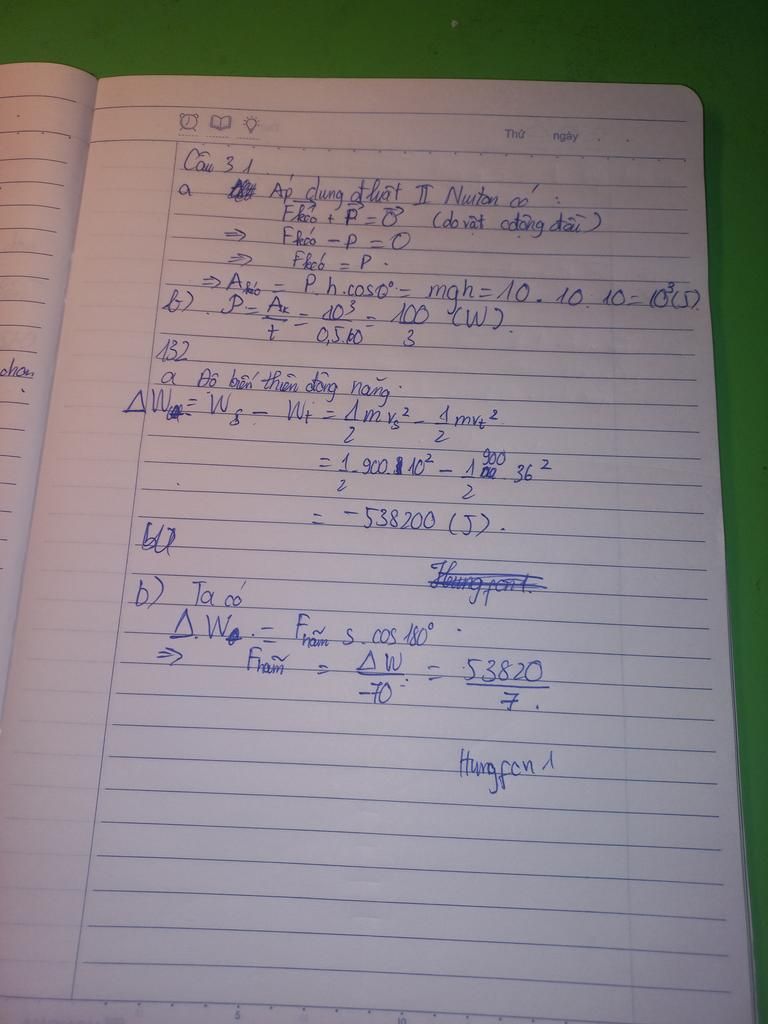 Thứ ngày
Câu 31
a Áp dụng đluật II Niutơn có :
Fkéo + P = 0 (do vật cđộng đều)
=> Fkéo - P = 0
=> Fkéo = P.
=> Akéo = P.h.cos0° = mgh = 10 . 10 . 10 = 10³(J).
b) P = Ak/t = 10³/0,5.60 = 100/3 (W).
132
a Độ biến thiên động năng.
ΔWđ = Ws - Wt = 1/2 m vs² - 1/2 mvt²
= 1/2 . 900 . 10² - 1/2 900 . 36²
= -538200 (J).
b) Ta có
ΔWđ = Fhãm s . cos 180°
=> Fhãm = ΔW/-70 = 53820/7.
Hungfcn1
chọn
5 10